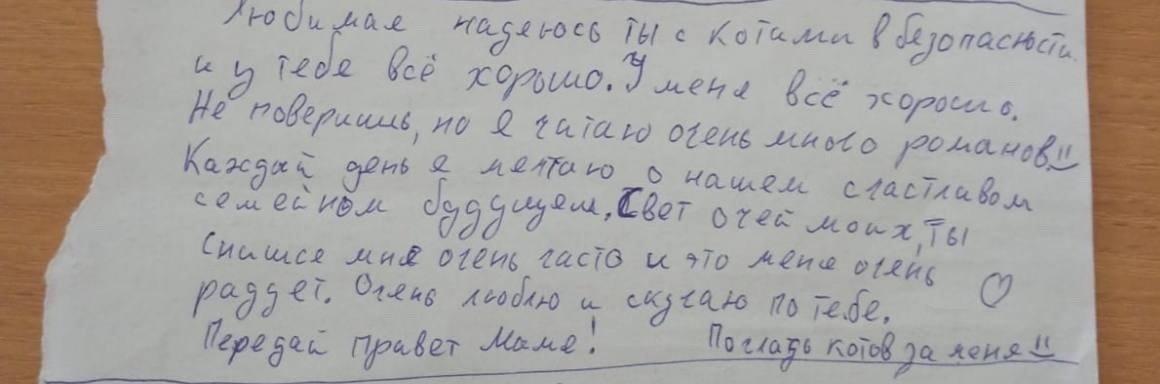 Любимая надеюсь ты с котами в безопасности
и у тебя всё хорошо. У меня всё хорошо.
Не поверишь, но я читаю очень много романов!!
Каждый день я мечтаю о нашем счастливом
семейном будущем. Свет очей моих, ты
снишся мне очень часто и это меня очень
радует. Очень люблю и скучаю по тебе.
Передай привет Маме! Погладь котов за меня